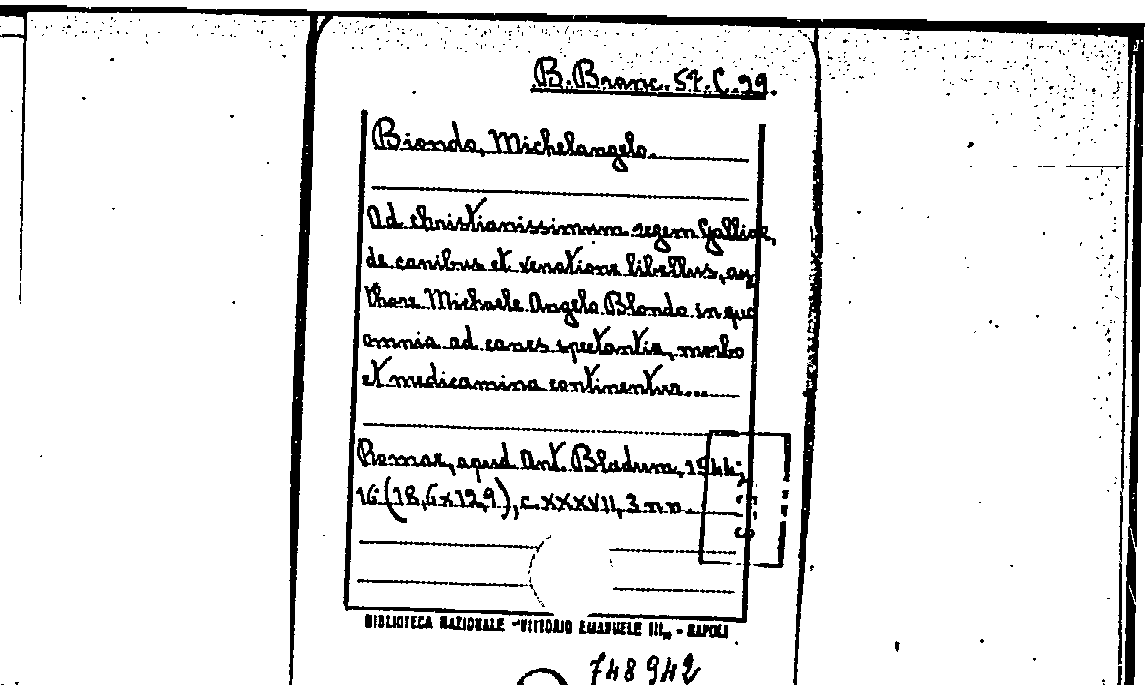 B. Branc. 57. C. 99.
Biondo, Michelangelo.
Ad christianissimum regem Galliae,
de canibus et venatione libellus, au
thore Michaele Angelo Blondo in quo
omnia ad canes spectantia, morbo
et medicamina continentur...
Romae, apud Ant. Bladum, 1544;
16 (18,6x12,9), c. XXXVII, 3 nn.
BIBLIOTECA NAZIONALE "VITTORIO EMANUELE III„ - NAPOLI
748942